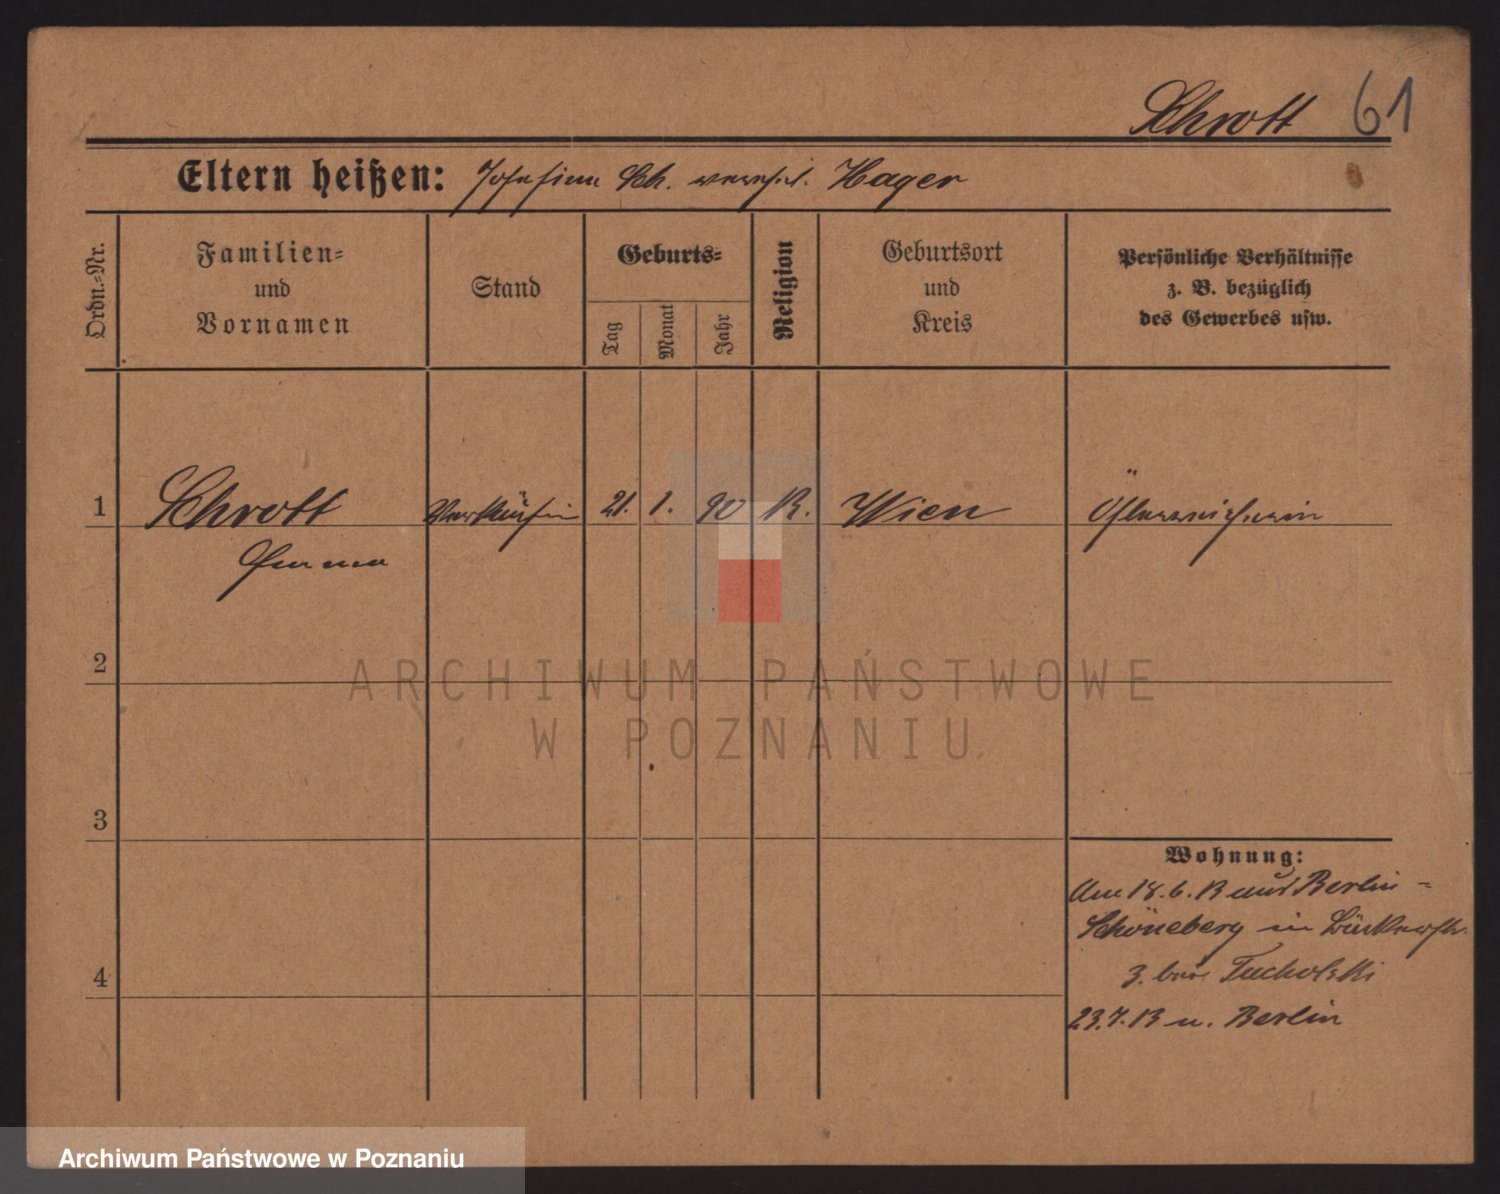 Schrott 61
Eltern heißen: Josefine Sch. verehel. Hager
Ordn.-Nr.
Familien-
und
Vornamen
Stand
Geburts-
Tag
Monat
Jahr
Religion
Geburtsort
und
Kreis
Persönliche Verhältnisse
z. B. bezüglich
des Gewerbes usw.
1 Schrott Verkäuferin 21. 1. 90 K. Wien Österreicherin
Emma
2
ARCHIWUM PAŃSTWOWE
W POZNANIU
3
Wohnung:
Am 18.6.13 aus Berlin-
Schöneberg in
4
3. bei Tucholski
23.7.13 n. Berlin
Archiwum Państwowe w Poznaniu